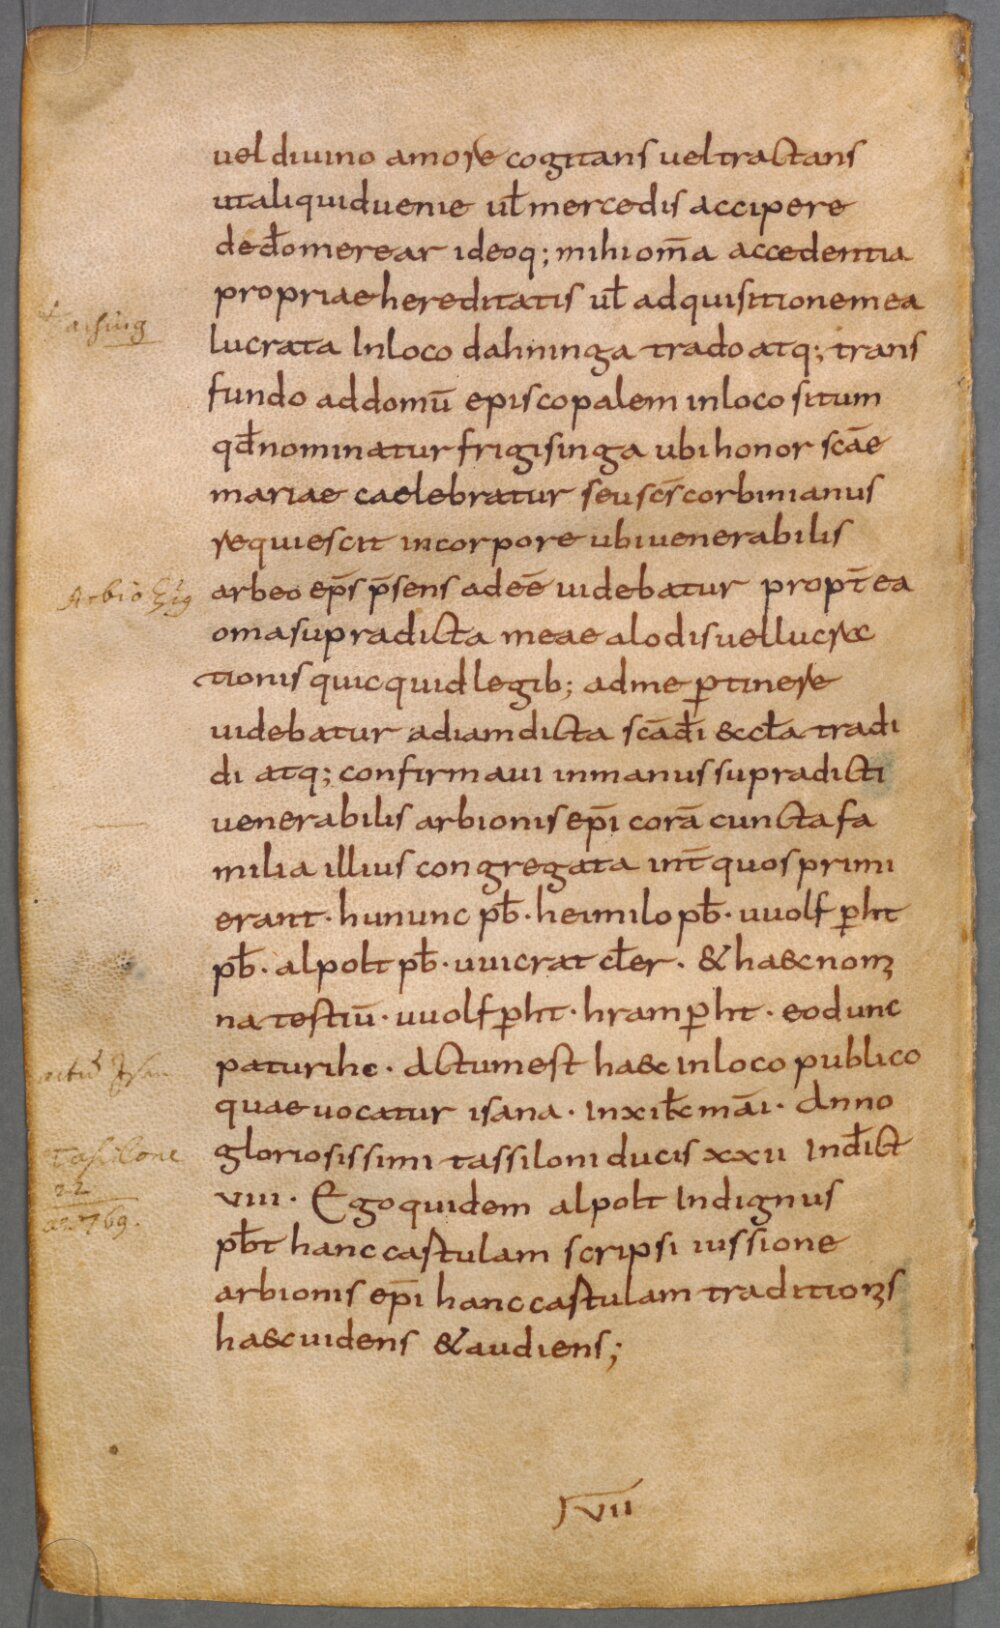 uel diuino amore cogitans uel tractans
ut aliquid uenie ul̄ mercedis accipere
de dō merear ideoq; mihi om̄a accedentia
propriae hereditatis ul̄ adquisitione mea
lucrata In loco dahininga trado atq; trans
Arbio
fundo ad domū episcopalem in loco situm
qd̄ nominatur frigisinga ubi honor scāe
mariae caelebratur seu scs̄ corbinianus
requiescit in corpore ubi uenerabilis
arbeo ep̄s p̄sens ad eē uidebatur propt̄ ea
oma supradicta meae alodis uel lucrae
tionis quicquid legib; ad me ꝑtinere
uidebatur ad iam dicta scā dī &ccl̄a tradi
di atq; confirmaui in manus supradicti
uenerabilis arbionis ep̄i corā cuncta fa
milia illius congregata int̄ quos primi
erant · hununc pb̄ · heimilo pb̄ · uuolfꝑht
pb̄ · alpolt pb̄ · uuicrat cl̄er · & haec nomi
na testiū · uuolfꝑht · hramꝑht · eodunc
paturihc · Actum est haec in loco publico
quae uocatur isana · In xi kl̄ māi · Anno
Tassilone
22
aº 769.
gloriosissimi tassiloni ducis xxii Indict̄
viii · Ego quidem alpolt Indignus
pb̄t hanc castulam scripsi iussione
arbionis ep̄i hanc castulam traditionis
haec uidens & audiens;
lvii